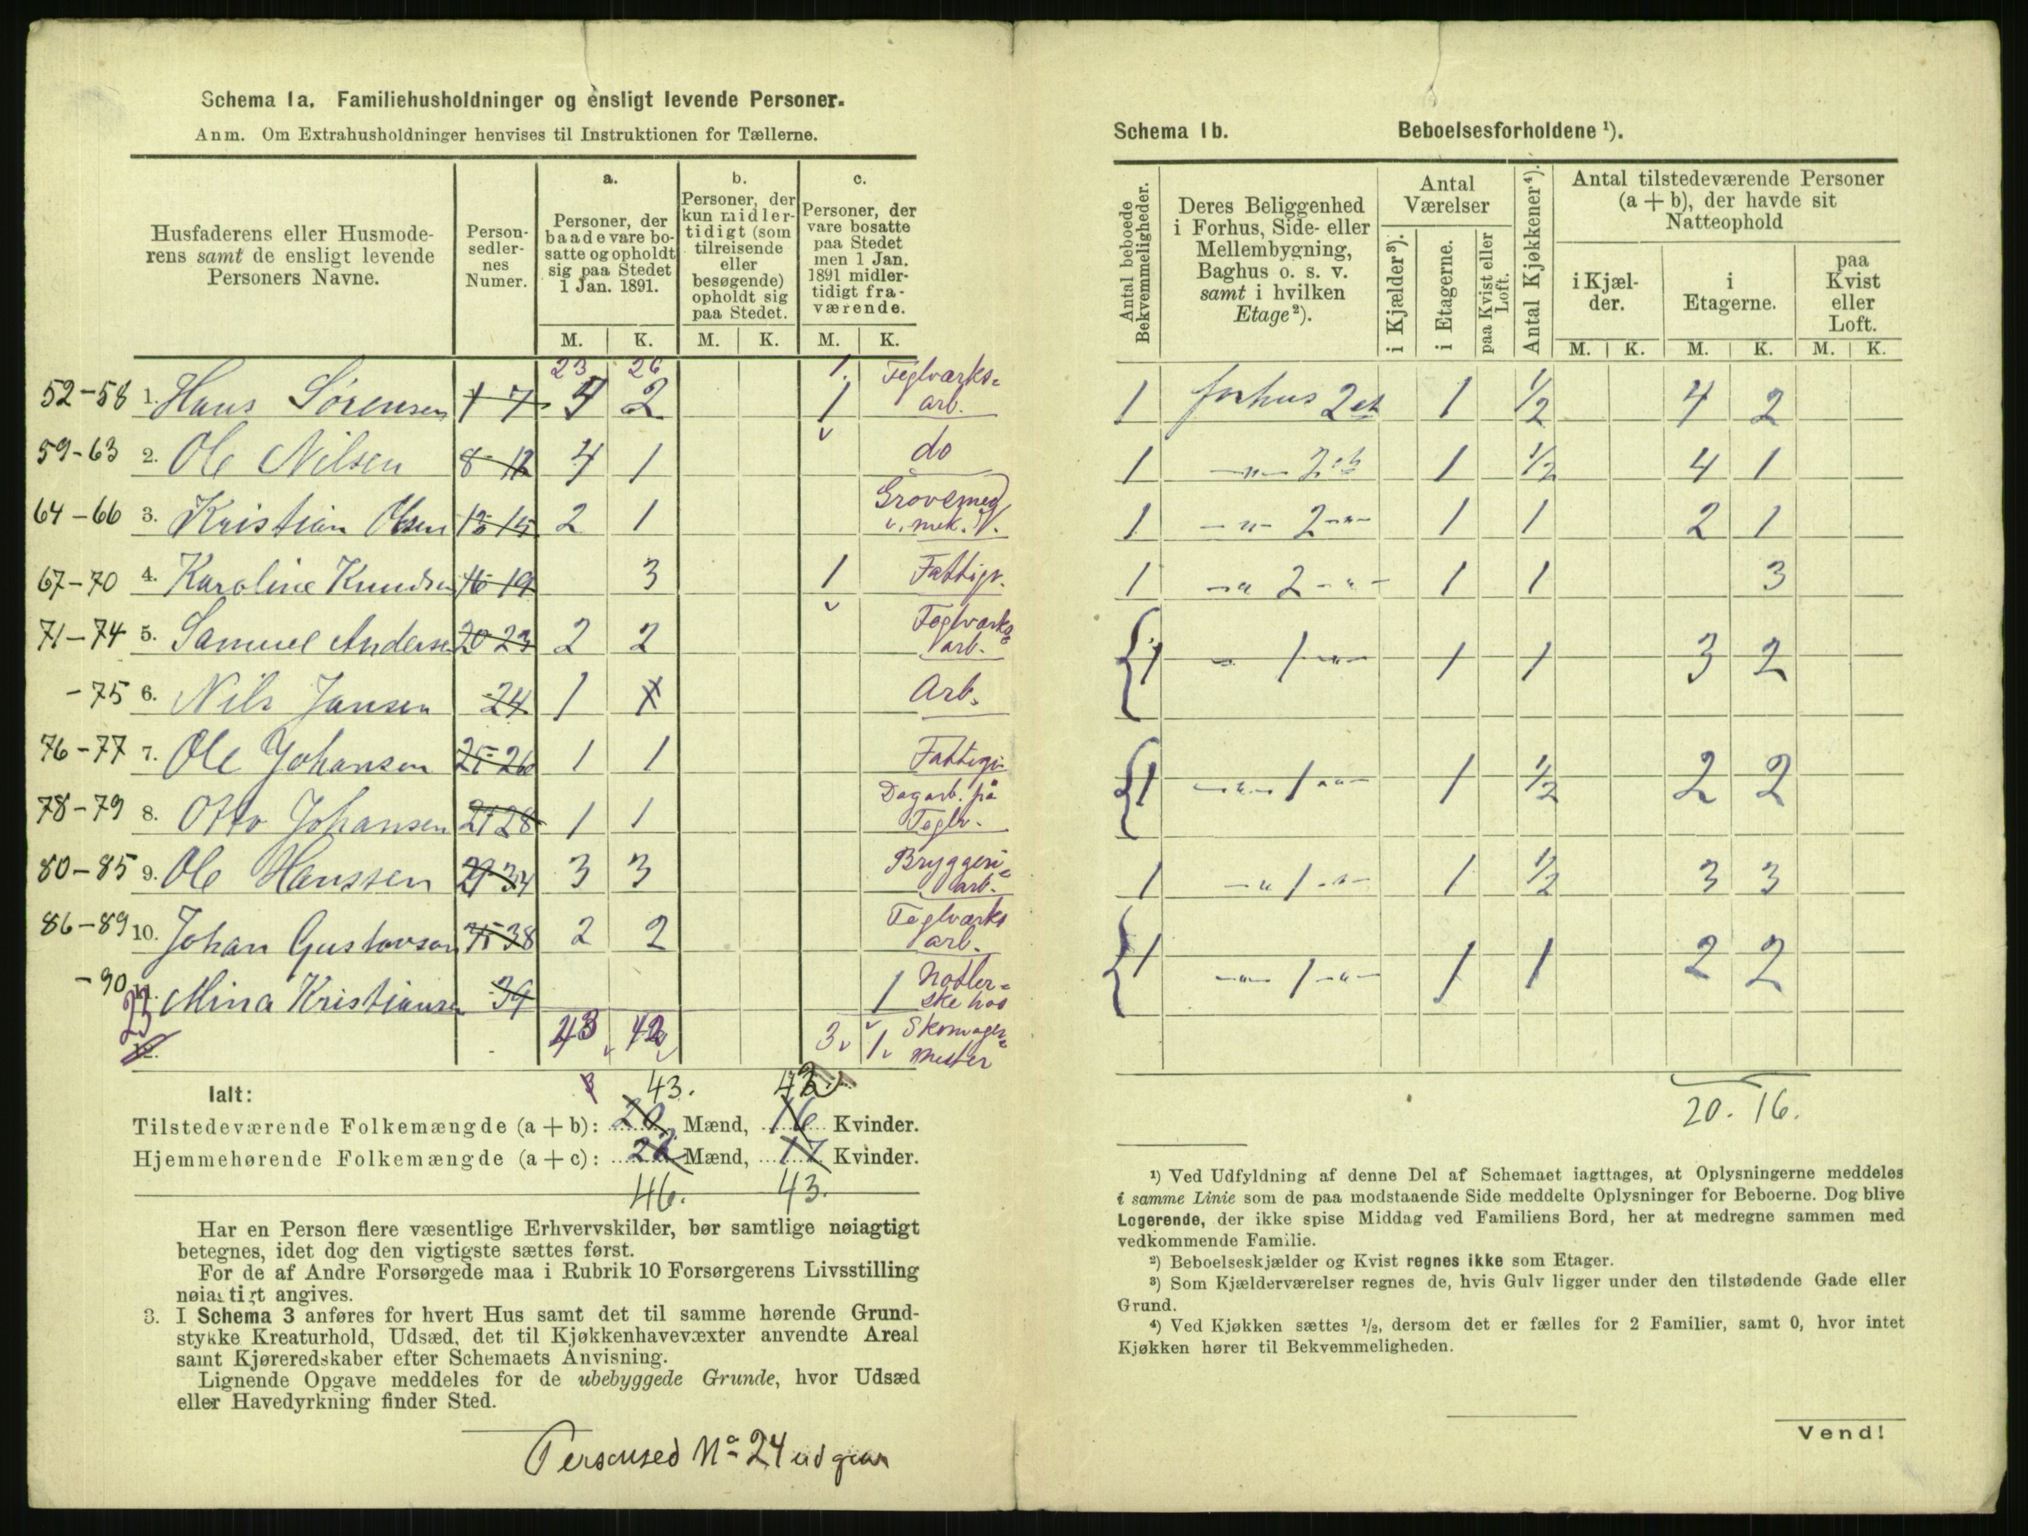 Schema 1a. Familiehusholdninger og ensligt levende Personer.
Anm. Om Extrahusholdninger henvises til Instruktionen for Tællerne.
Husfaderens eller Husmoderens samt de ensligt levende Personers Navne.
Personsedlernes Numer.
a.
Personer, der baade vare bosatte og opholdt sig paa Stedet 1 Jan. 1891.
b.
Personer, der kun midlertidigt (som tilreisende eller besøgende) opholdt sig paa Stedet.
c.
Personer, der vare bosatte paa Stedet men 1 Jan. 1891 midlertidigt fraværende.
M. K. M. K. M. K.
23 26 1.
52-58 1. Hans Sørensen 1 7 4 2 1 Teglværks= arb.
59-63 2. Ole Nilsen 8-12 4 1 do
64-66 3. Kristian Olsen 13-15 2 1 Grovsmed v. mek. V.
67-70 4. Karoline Knudsen 16-19 3 1 Fattigv.
71-74 5. Samuel Andersen 20-23 2 2 Teglværks= arb.
-75 6. Nils Jansen 24 1 1 Arb.
76-77 7. Ole Johansen 25-26 1 1 Fattigv
78-79 8. Otto Johansen 27 28 1 1 Dagarb. på Teglv.
80-85 9. Ole Hanssen 29-34 3 3 Bryggeri= arb.
86-89 10. Johan Gustavson 35-38 2 2 Teglværks arb.
-90 11. Mina Kristiansen 39 1
23 12. 43 42 3 1 Skomager= mester
Ialt: 43. 42
Tilstedeværende Folkemængde (a + b): 20 Mænd, 16 Kvinder.
Hjemmehørende Folkemængde (a + c): 22 Mænd, 17 Kvinder.
46. 43.
Har en Person flere væsentlige Erhvervskilder, bør samtlige nøiagtigt
betegnes, idet dog den vigtigste sættes først.
For de af Andre Forsørgede maa i Rubrik 10 Forsørgerens Livsstilling
nøiagtigt angives.
3. I Schema 3 anføres for hvert Hus samt det til samme hørende Grund-
stykke Kreaturhold, Udsæd, det til Kjøkkenhavevæxter anvendte Areal
samt Kjøreredskaber efter Schemaets Anvisning.
Lignende Opgave meddeles for de ubebyggede Grunde, hvor Udsæd
eller Havedyrkning finder Sted.
Personsed No 24 udgaar
Schema 1b. Beboelsesforholdene 1).
Antal beboede Bekvemmeligheder.
Deres Beliggenhed i Forhus, Side- eller Mellembygning, Baghus o. s. v. samt i hvilken Etage 2).
Antal Værelser
i Kjælder 3).
i Etagerne.
paa Kvist eller Loft.
Antal Kjøkkener 4).
Antal tilstedeværende Personer (a + b), der havde sit Natteophold
i Kjælder.
i Etagerne.
paa Kvist eller Loft.
M. K. M. K. M. K.
1 forhus 2et 1 1/2 4 2
1 -"- 2et 1 1/2 4 1
1 -"- 2 -"- 1 1 2 1
1 -"- 2 -"- 1 1 3
1 - 1 -"- 1 1 3 2
1 -"- 1 -"- 1 1/2 2 2
1 -"- 1 -"- 1 1/2 3 3
1 -"- 1 -"- 1 1 2 2
20. 16.
1) Ved Udfyldning af denne Del af Schemaet iagttages, at Oplysningerne meddeles
i samme Linie som de paa modstaaende Side meddelte Oplysninger for Beboerne. Dog blive
Logerende, der ikke spise Middag ved Familiens Bord, her at medregne sammen med
vedkommende Familie.
2) Beboelseskjælder og Kvist regnes ikke som Etager.
3) Som Kjælderværelser regnes de, hvis Gulv ligger under den tilstødende Gade eller
Grund.
4) Ved Kjøkken sættes 1/2, dersom det er fælles for 2 Familier, samt 0, hvor intet
Kjøkken hører til Bekvemmeligheden.
Vend!